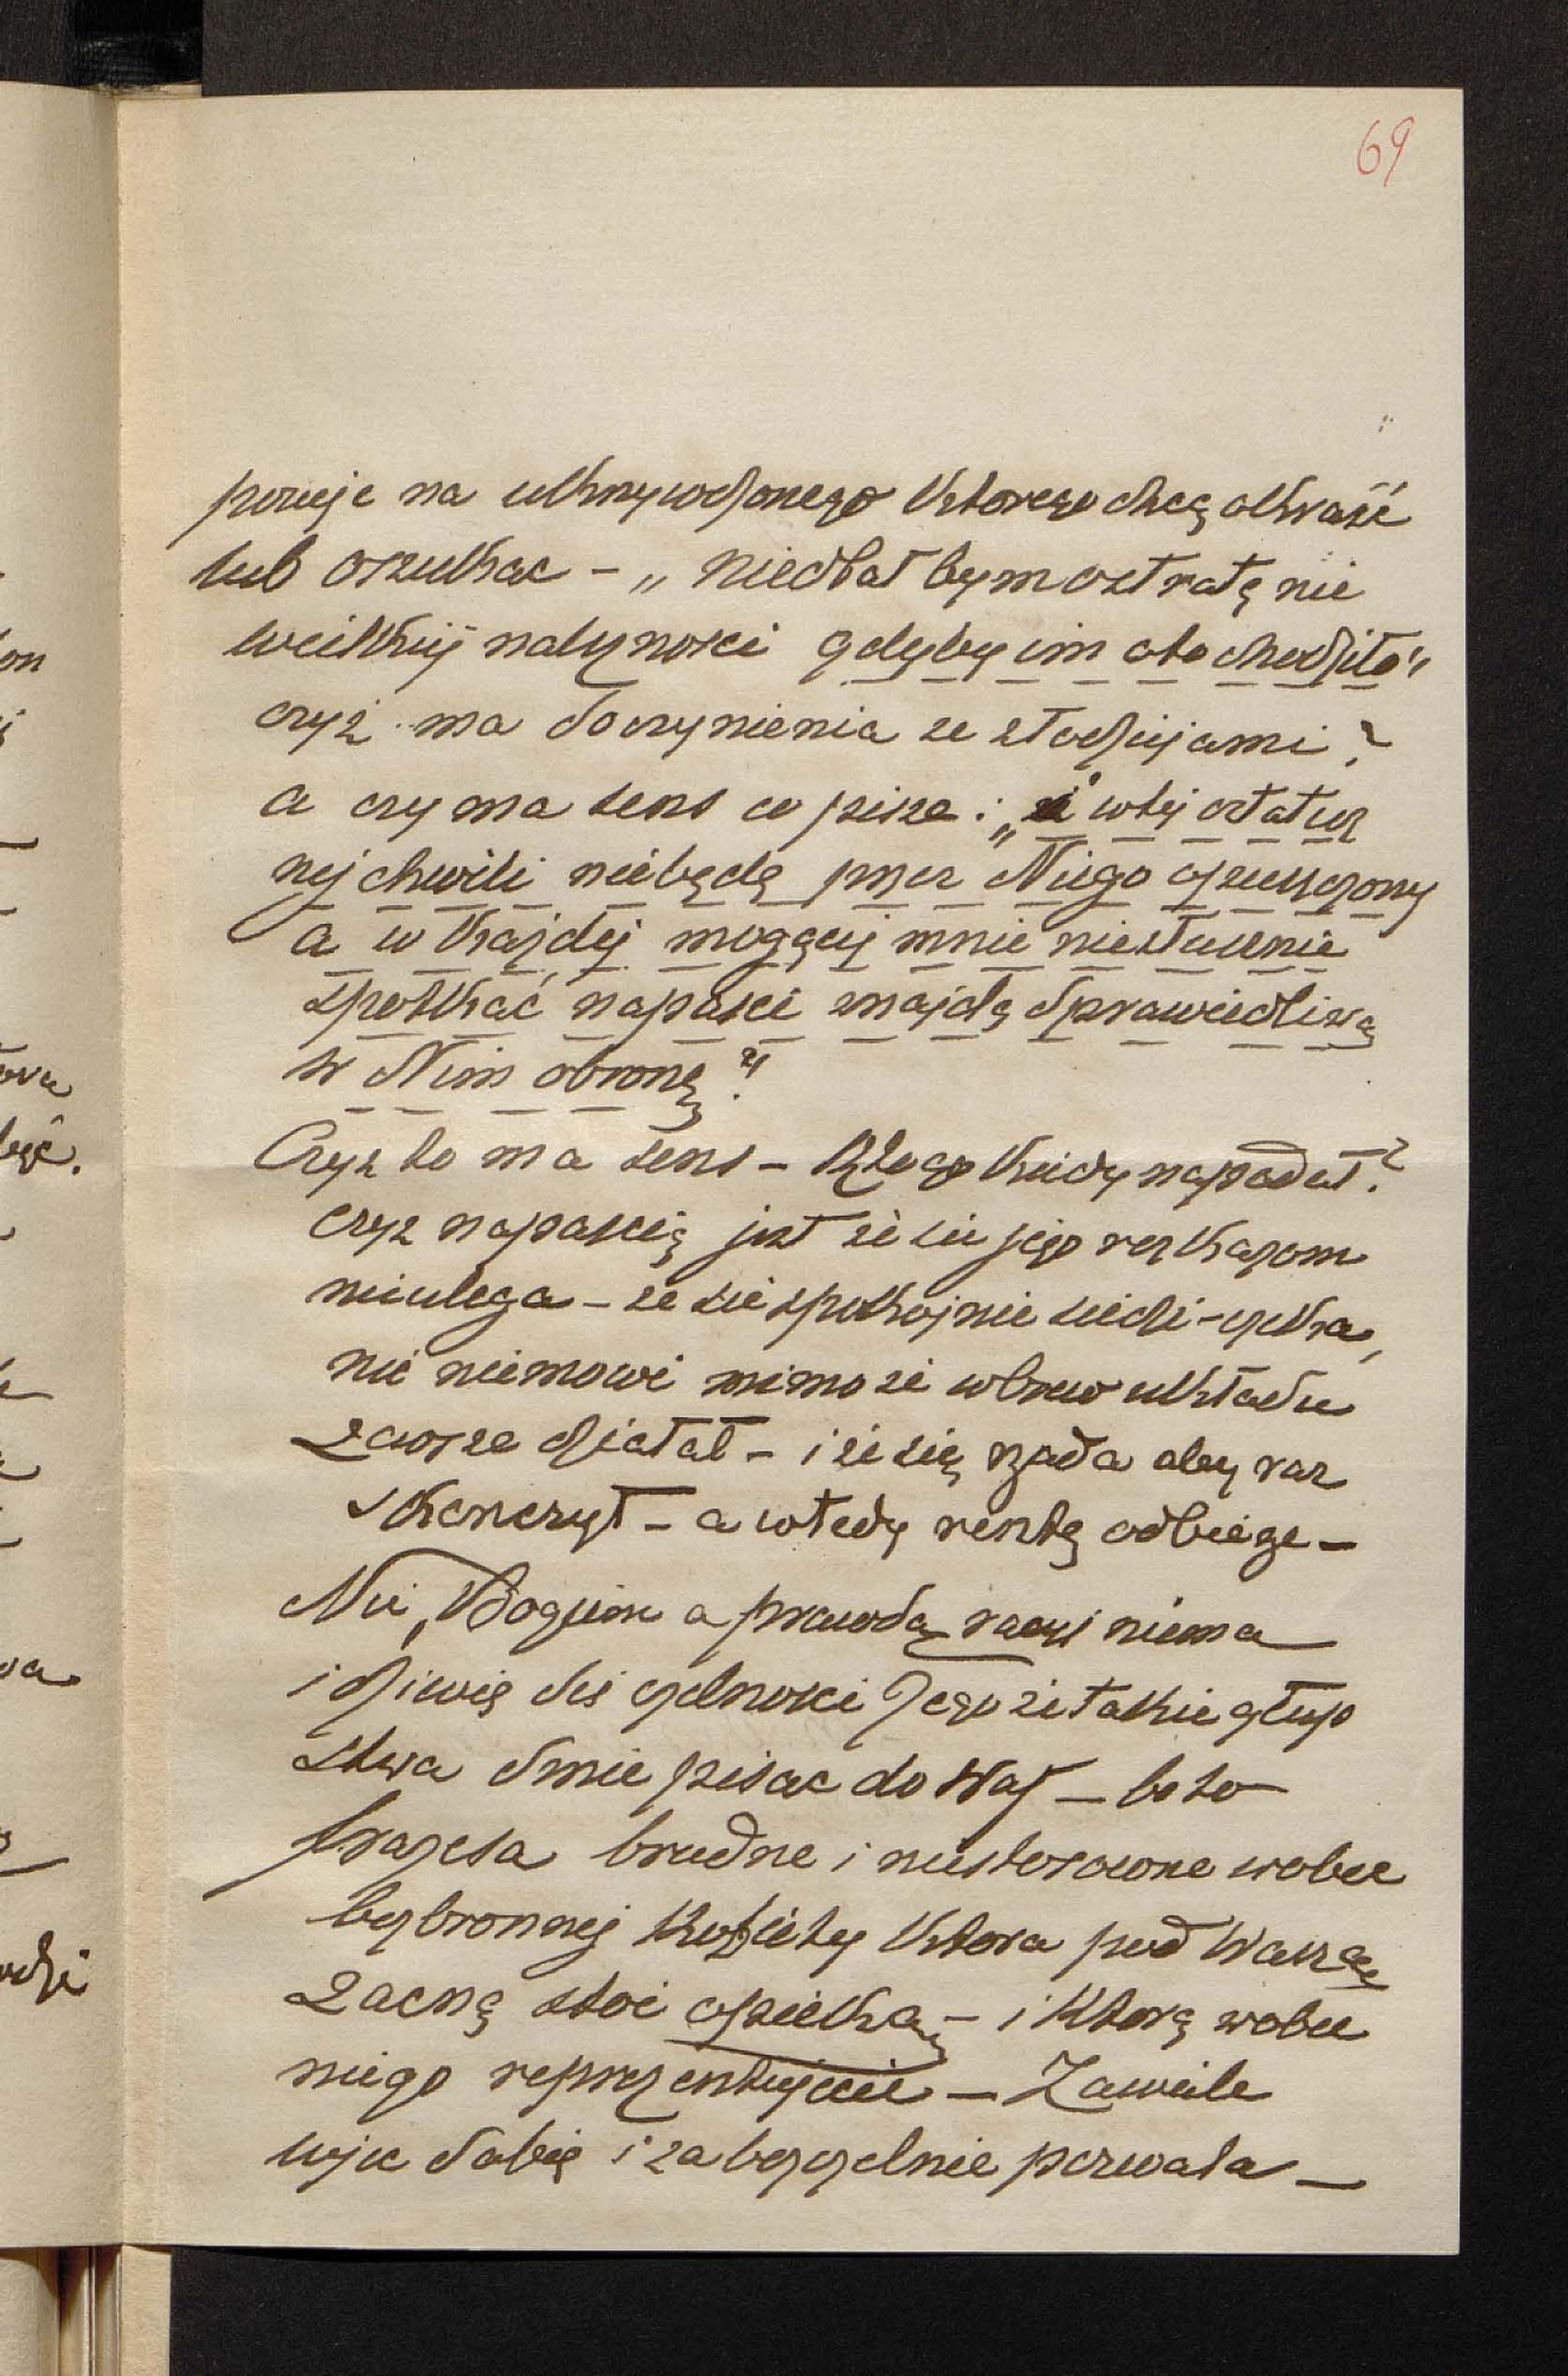 69
pozuje na ukrzywdzonego którego chcą okraść
lub oszukac – „ niedbał bym o stratę nie
wielkiej należnosci gdyby im oto chodziło"
czyż ma doczynienia ze złodziejami?
a czy ma sens co pisze: „ że wtej ostatecz
nej chwili niebędę przez Niego opuszczony
a w każdej mogącej mnie niesłusznie
spotkać napaści znajdę sprawiedliwą
w Nim obronę"?
Czyz to ma sens – Kto go kiedy napadał?
czyz napascią jest że sie jego rozkazom
nieulega – ze sie spokojnie siedzi – czeka,
nic niemowi mimo ze wbrew układu
zawsze działał – i że się rząda aby raz
skonczył – a wtedy rentę odbierze –
Nie, Bogiem a prawdą racyi niema
i dziwię sie czelnosci Jego że takie głup
stwa smie pisac do Was – bo to
frazesa brudne i niestosowne wobec
bezbronnej kobiety ktora pod Waszą
zacną stoi opieką – i ktorą wobec
niego reprezentujecie – Zawiele
więc sobię i za bezczelnie pozwala –
on
wa